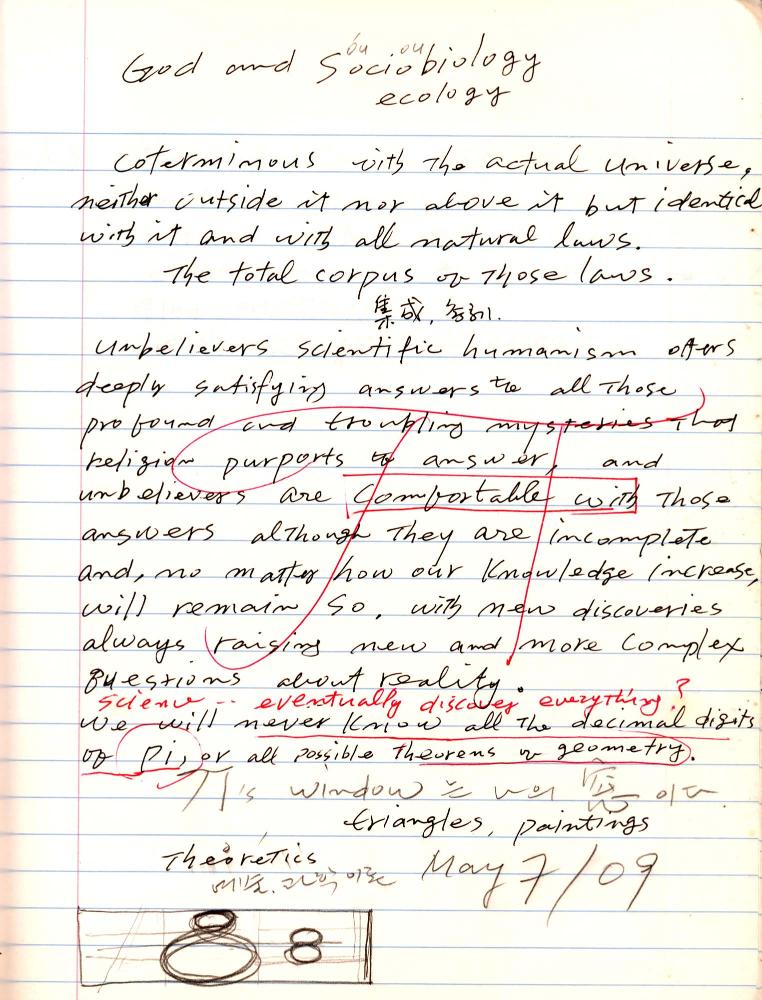 God and Sociobiology
ou ou
ecology
coterminous with the actual universe,
neither outside it nor above it but identical
with it and with all natural laws.
The total corpus of those laws.
集成,
unbelievers scientific humanism offers
deeply satisfying answers to all those
profound and troubling mysteries that
religion purports to answer, and
unbelievers are comfortable with those
answers although they are incomplete
and, no matter how our knowledge increase,
will remain so, with new discoveries
always raising new and more complex
questions about reality.
science -- eventually discover everything?
we will never know all the decimal digits
of pi, or all possible theorems of geometry.
π's window 는 나의 이다.
triangles, paintings
Theoretics
예술.과학이론 May 7/09
8 8